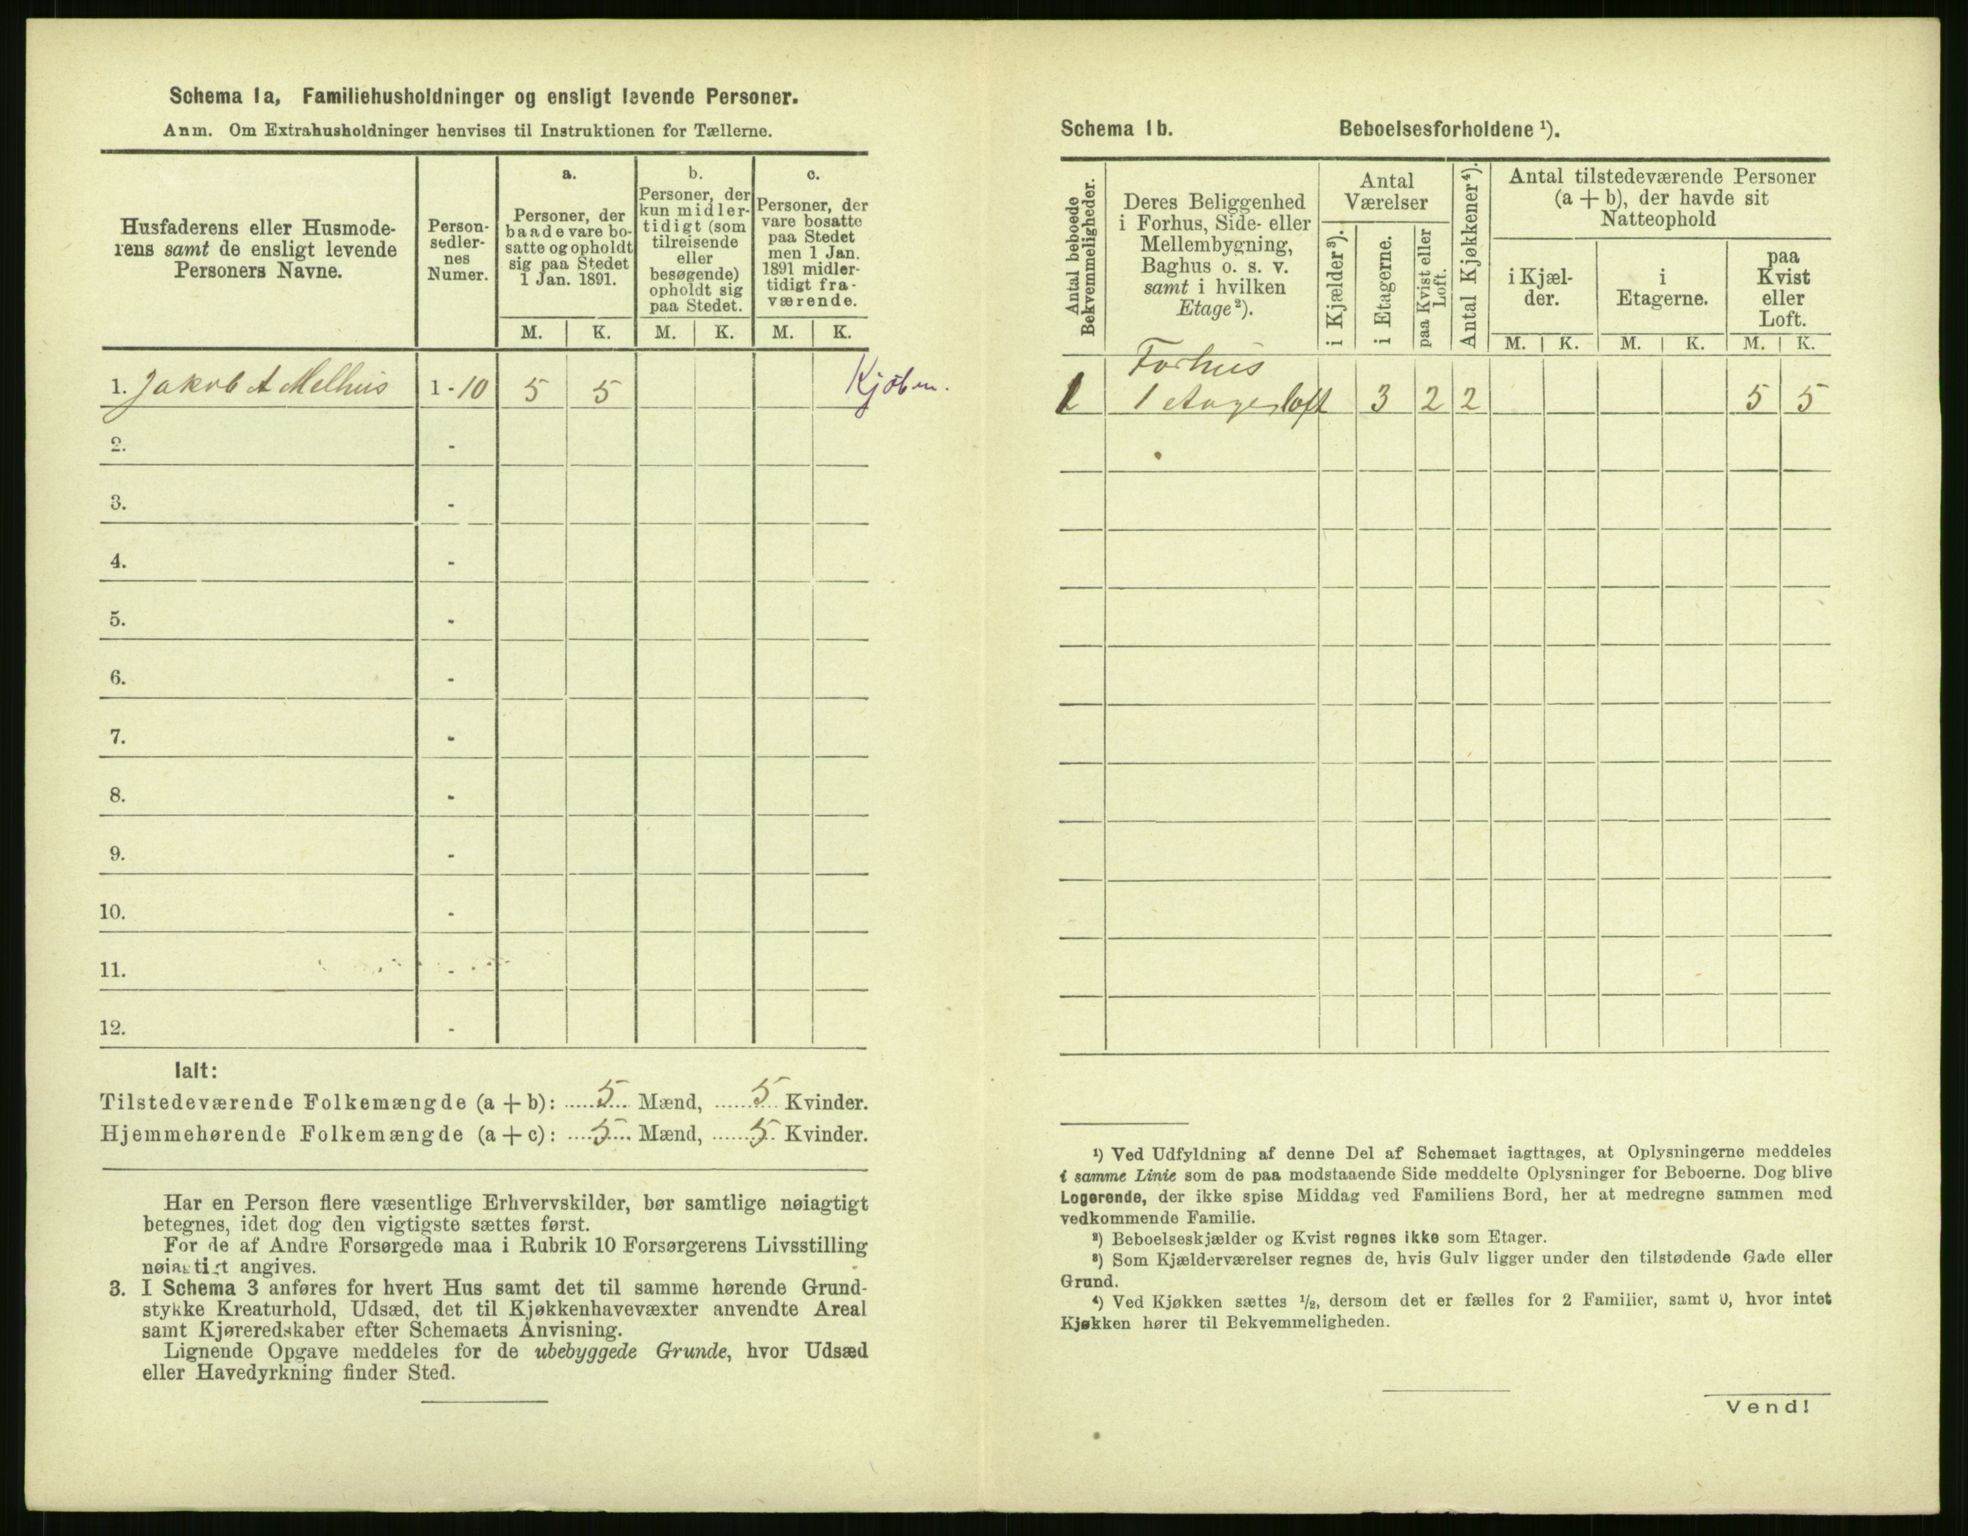 Schema 1a, Familiehusholdninger og ensligt levende Personer.
Anm. Om Extrahusholdninger henvises til Instruktionen for Tællerne.
Husfaderens eller Husmode-
rens samt de ensligt levende
Personers Navne.
Person-
sedler-
nes
Numer.
a.
Personer, der
baade vare bo-
satte og opholdt
sig paa Stedet
1 Jan. 1891.
b.
Personer, der
kun midler-
tidigt (som
tilreisende
eller
besøgende)
opholdt sig
paa Stedet.
c.
Personer, der
vare bosatte
paa Stedet
men 1 Jan.
1891 midler-
tidigt fra-
værende.
M. K. M. K. M. K.
1. Jakob A Melhus 1-10 5 5 Kjøbm.
2. -
3. -
4. -
5. -
6. -
7. -
8. -
9. -
10. -
11. -
12. -
Ialt:
Tilstedeværende Folkemængde (a + b): 5 Mænd, 5 Kvinder.
Hjemmehørende Folkemængde (a + c): 5 Mænd, 5 Kvinder.
Har en Person flere væsentlige Erhvervskilder, bør samtlige nøiagtigt
betegnes, idet dog den vigtigste sættes først.
For de af Andre Forsørgede maa i Rubrik 10 Forsørgerens Livsstilling
nøiagtigt angives.
3. I Schema 3 anføres for hvert Hus samt det til samme hørende Grund-
stykke Kreaturhold, Udsæd, det til Kjøkkenhavevæxter anvendte Areal
samt Kjøreredskaber efter Schemaets Anvisning.
Lignende Opgave meddeles for de ubebyggede Grunde, hvor Udsæd
eller Havedyrkning finder Sted.
Schema 1b. Beboelsesforholdene ¹).
Antal beboede
Bekvemmeligheder.
Deres Beliggenhed
i Forhus, Side- eller
Mellembygning,
Baghus o. s. v.
samt i hvilken
Etage²).
Antal
Værelser
i Kjælder³).
i Etagerne.
paa Kvist eller
Loft.
Antal Kjøkkener⁴).
Antal tilstedeværende Personer
(a + b), der havde sit
Natteophold
i Kjæl-
der.
i
Etagerne.
paa
Kvist
eller
Loft.
M. K. M. K. M. K.
Forhus
1 1 Etages loft 3 2 2 5 5
¹) Ved Udfyldning af denne Del af Schemaet iagttages, at Oplysningerne meddeles
i samme Linie som de paa modstaaende Side meddelte Oplysninger for Beboerne. Dog blive
Logerende, der ikke spise Middag ved Familiens Bord, her at medregne sammen med
vedkommende Familie.
²) Beboelseskjælder og Kvist regnes ikke som Etager.
³) Som Kjælderværelser regnes de, hvis Gulv ligger under den tilstødende Gade eller
Grund.
⁴) Ved Kjøkken sættes ½, dersom det er fælles for 2 Familier, samt 0, hvor intet
Kjøkken hører til Bekvemmeligheden.
Vend!